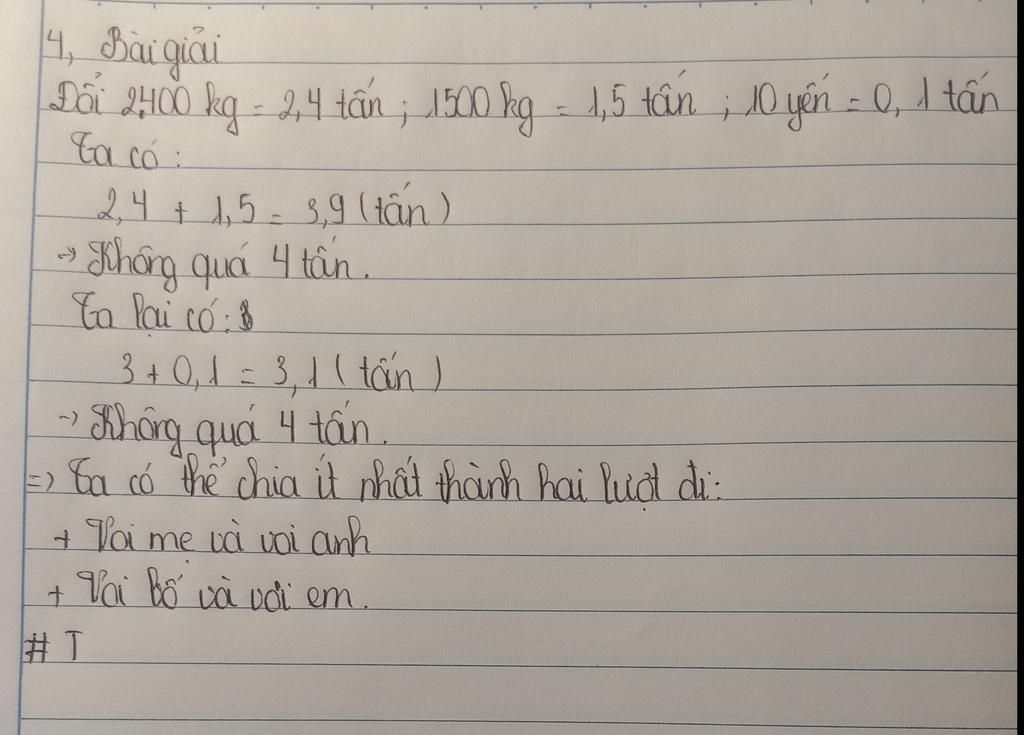 4, Bài giải
Đổi 2400 kg = 2,4 tấn ; 1500 kg = 1,5 tấn ; 10 yến = 0,1 tấn
Ta có :
2,4 + 1,5 = 3,9 (tấn)
→ Không quá 4 tấn.
Ta lại có :
3 + 0,1 = 3,1 ( tấn )
→ Không quá 4 tấn.
=> Ta có thể chia ít nhất thành hai lượt đi :
+ Voi mẹ và voi anh
+ Voi bố và voi em.
# T